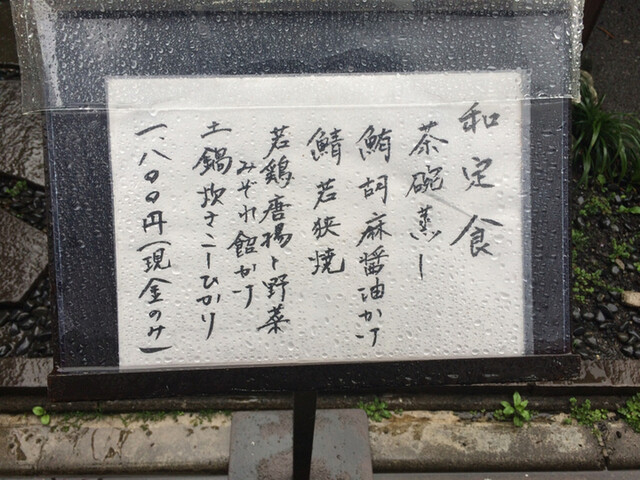 和定食
茶碗蒸し
鮪胡麻醤油かけ
鯖若狭焼
若鶏唐揚と野菜
みぞれ餡かけ
土鍋炊きこしひかり
一、八〇〇円(現金のみ)